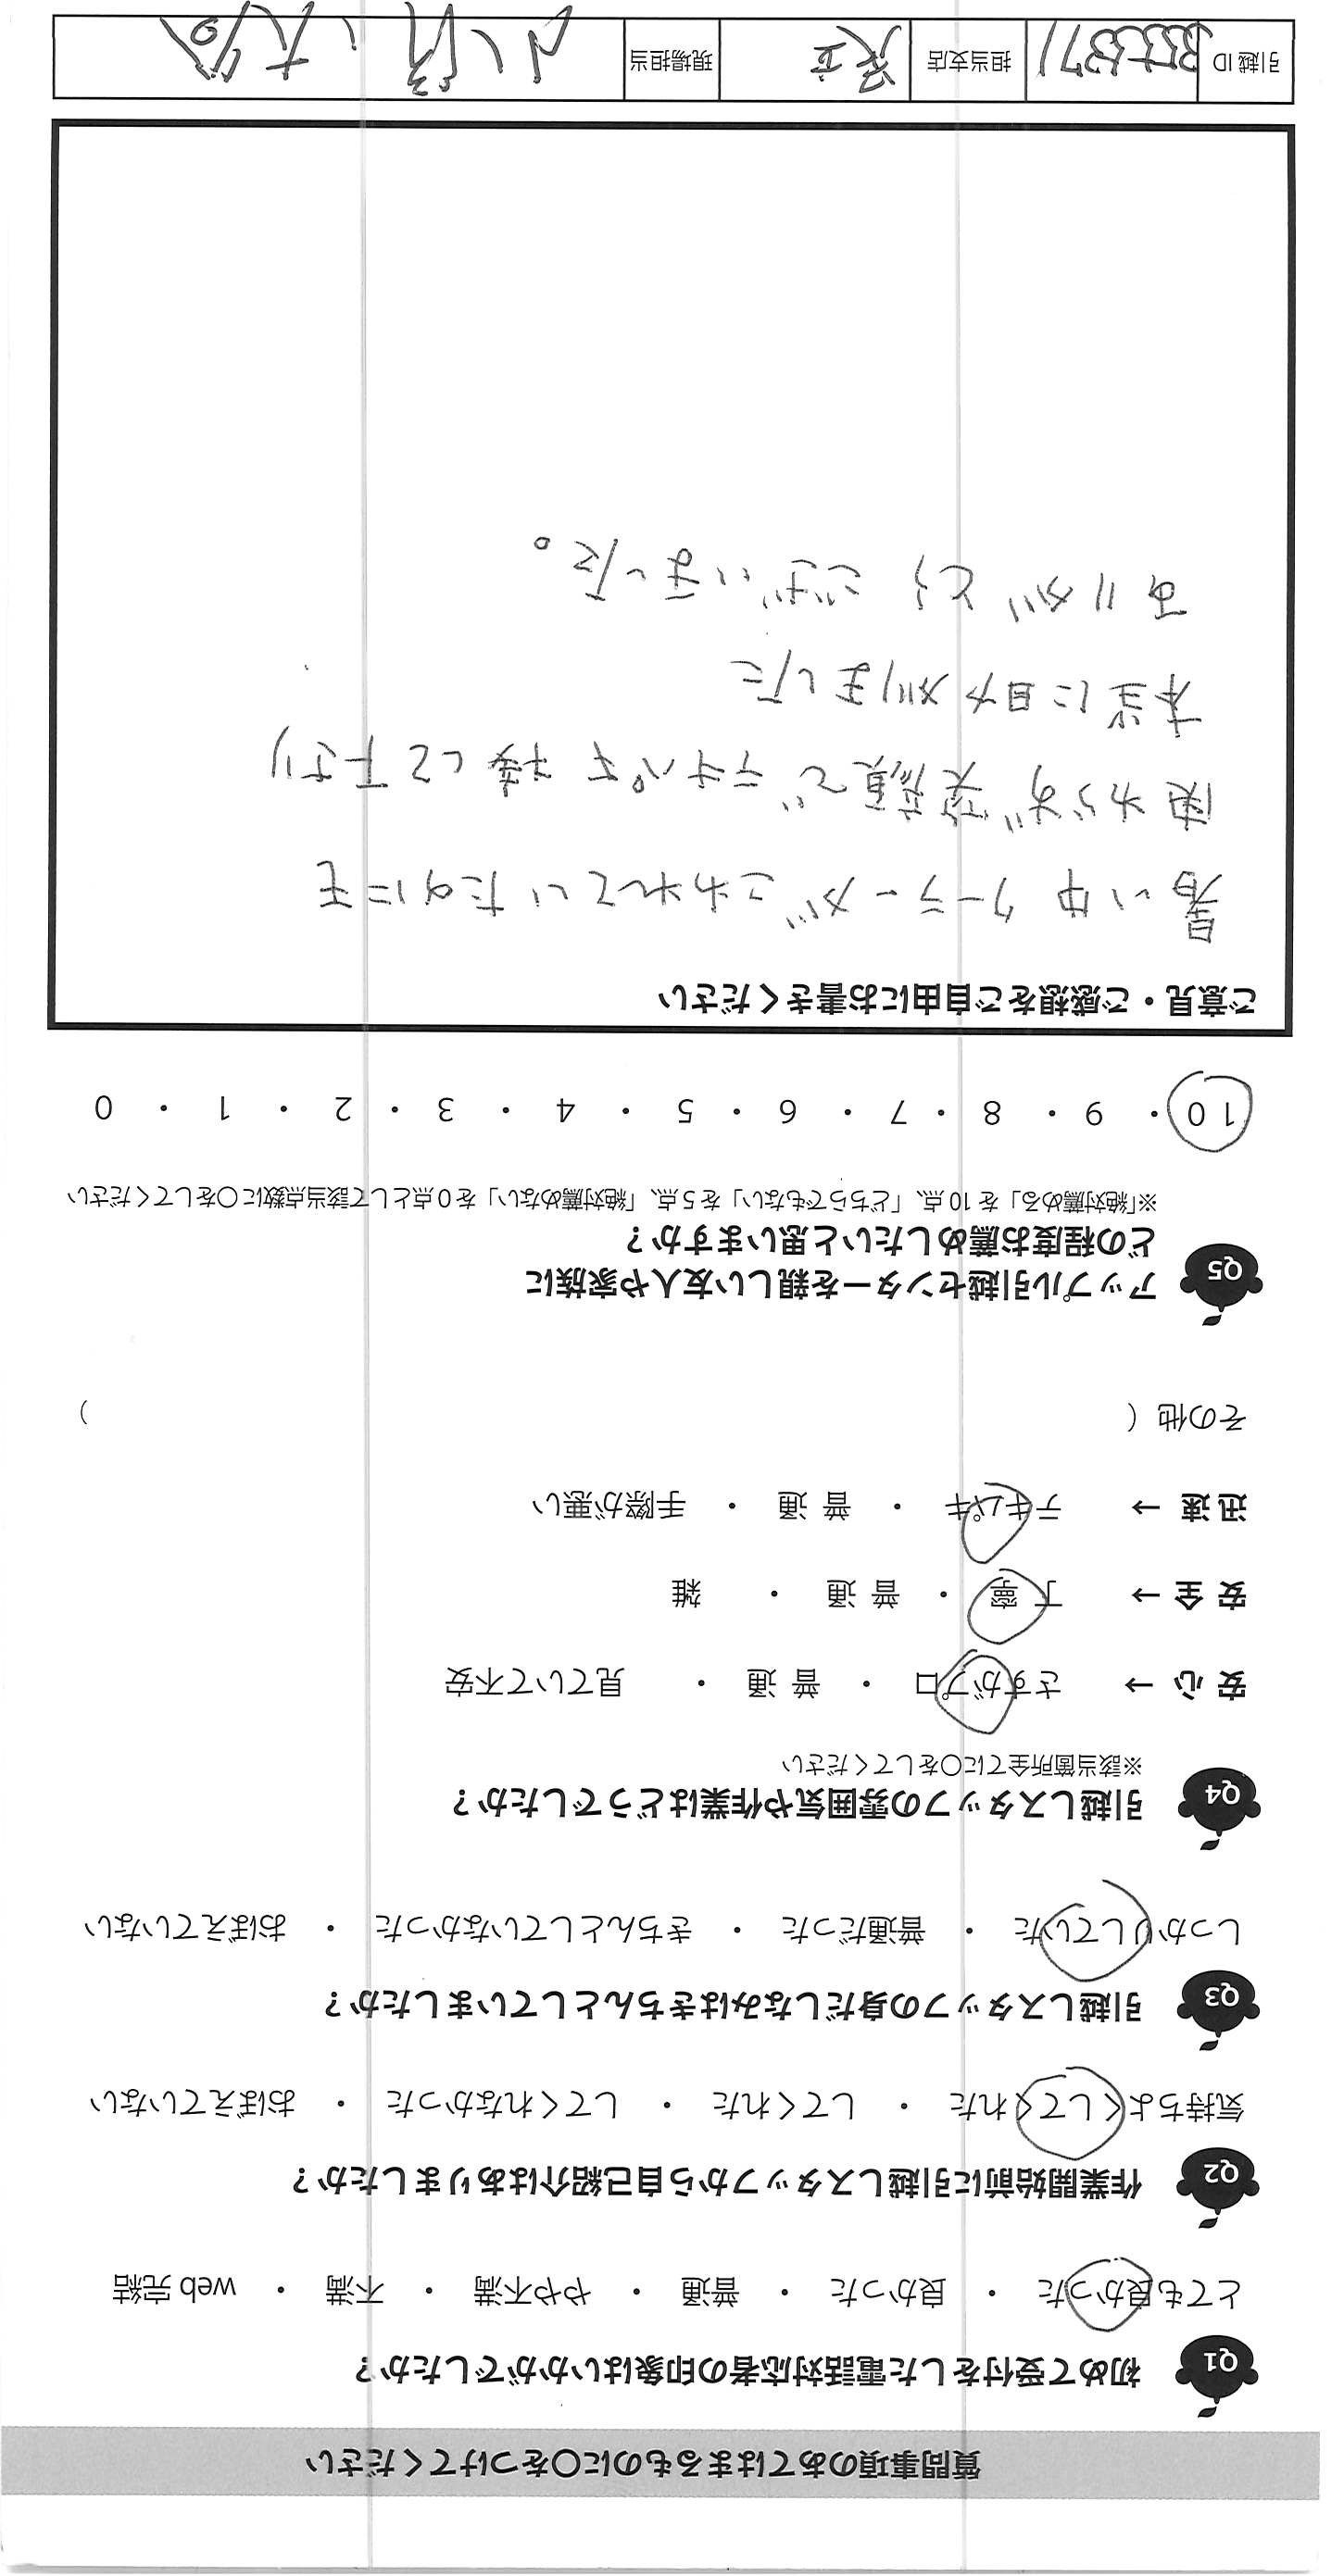 質問事項のあてはまるものに〇をつけてください
Q1 初めて受付をした電話対応者の印象はいかがでしたか？
とても良かった ・ 良かった ・ 普通 ・ やや不満 ・ 不満 ・ web 完結
Q2 作業開始前に引越しスタッフから自己紹介はありましたか？
気持ちよくしてくれた ・ してくれた ・ してくれなかった ・ おぼえていない
Q3 引越しスタッフの身だしなみはきちんとしていましたか？
しっかりしていた ・ 普通だった ・ きちんとしていなかった ・ おぼえていない
Q4 引越しスタッフの雰囲気や作業はどうでしたか？
※該当箇所全てに〇をしてください
安 心 → さすがプロ ・ 普 通 ・ 見ていて不安
安 全 → 丁 寧 ・ 普 通 ・ 雑
迅 速 → テキパキ ・ 普 通 ・ 手際が悪い
その他（ ）
Q5 アップル引越センターを親しい友人や家族に
どの程度お薦めしたいと思いますか？
※「絶対薦める」を 10 点、「どちらでもない」を 5 点、「絶対薦めない」を 0 点として該当点数に〇をしてください
10 ・ 9 ・ 8 ・ 7 ・ 6 ・ 5 ・ 4 ・ 3 ・ 2 ・ 1 ・ 0
ご意見・ご感想をご自由にお書きください
暑い中 クーラーが こわれていたのにも
関わらず 笑顔で テキパキ 接して下さり
本当に助かりました
ありがとう ございました。
引越 ID 担当支店 足立 現場担当